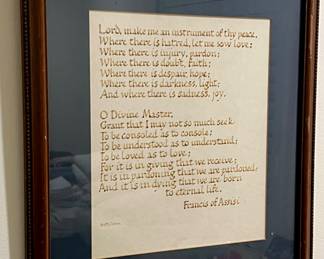 Lord, make me an instrument of thy peace,
Where there is hatred, let me sow love;
Where there is injury, pardon;
Where there is doubt, faith;
Where there is despair, hope;
Where there is darkness, light;
And where there is sadness, joy.
O Divine Master,
Grant that I may not so much seek
To be consoled as to console;
To be understood as to understand;
To be loved as to love;
For it is in giving that we receive;
It is in pardoning that we are pardoned;
And it is in dying that we are born
to eternal life.
Francis of Assisi